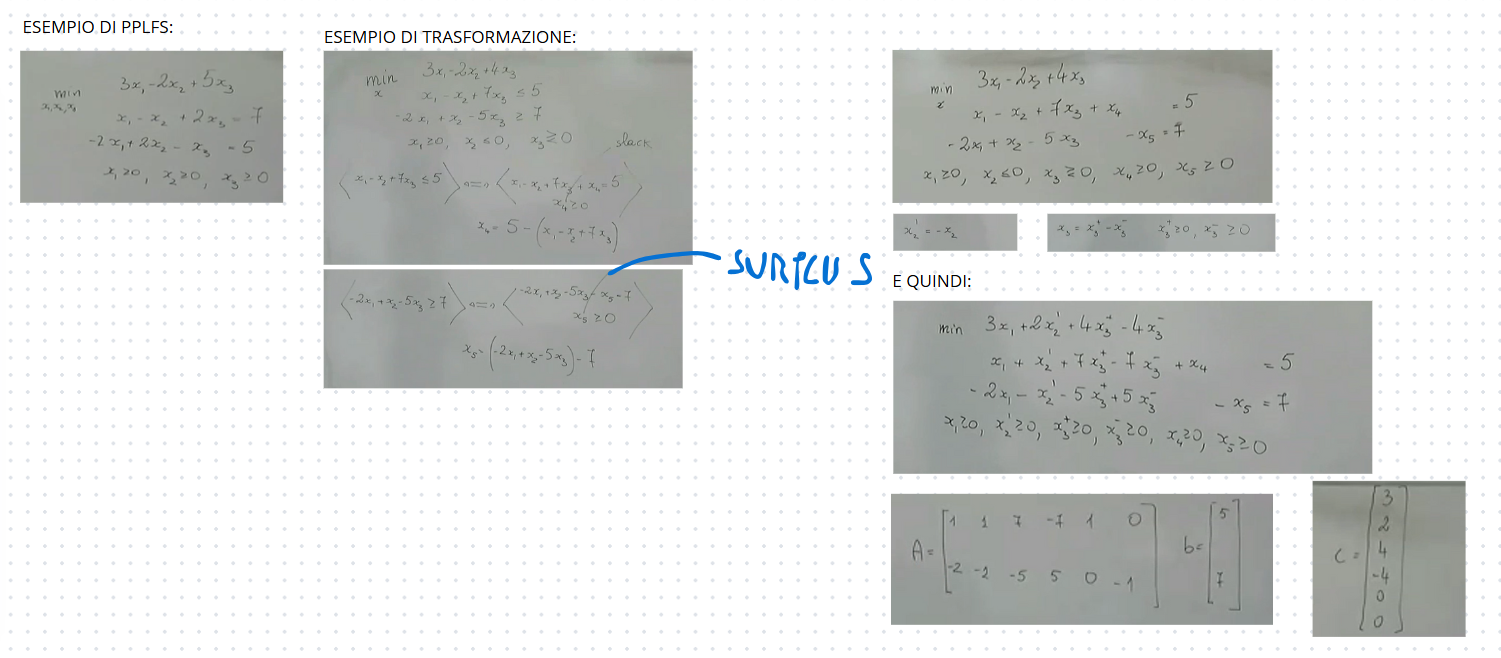 ESEMPIO DI PPLFS:
min 3x₁ - 2x₂ + 5x₃
x₁,x₂,x₃
x₁ - x₂ + 2x₃ = 7
-2x₁ + 2x₂ - x₃ = 5
x₁ ≥ 0, x₂ ≥ 0, x₃ ≥ 0
ESEMPIO DI TRASFORMAZIONE:
min 3x₁ - 2x₂ + 4x₃
x
x₁ - x₂ + 7x₃ ≤ 5
-2x₁ + x₂ - 5x₃ ≥ 7
x₁ ≥ 0, x₂ ≤ 0, x₃ ≷ 0
slack
⟨x₁ - x₂ + 7x₃ ≤ 5⟩ "=" ⟨x₁ - x₂ + 7x₃ + x₄ = 5
x₄ ≥ 0⟩
x₄ = 5 - (x₁ - x₂ + 7x₃)
SURPLUS
⟨-2x₁ + x₂ - 5x₃ ≥ 7⟩ "=" ⟨-2x₁ + x₂ - 5x₃ - x₅ = 7
x₅ ≥ 0⟩
x₅ = (-2x₁ + x₂ - 5x₃) - 7
min 3x₁ - 2x₂ + 4x₃
x
x₁ - x₂ + 7x₃ + x₄ = 5
-2x₁ + x₂ - 5x₃ - x₅ = 7
x₁ ≥ 0, x₂ ≤ 0, x₃ ≷ 0, x₄ ≥ 0, x₅ ≥ 0
x₂' = -x₂
x₃ = x₃⁺ - x₃⁻ x₃⁺ ≥ 0, x₃⁻ ≥ 0
E QUINDI:
min 3x₁ + 2x₂' + 4x₃⁺ - 4x₃⁻
x₁ + x₂' + 7x₃⁺ - 7x₃⁻ + x₄ = 5
-2x₁ - x₂' - 5x₃⁺ + 5x₃⁻ - x₅ = 7
x₁ ≥ 0, x₂' ≥ 0, x₃⁺ ≥ 0, x₃⁻ ≥ 0, x₄ ≥ 0, x₅ ≥ 0
A = [1 1 7 -7 1 0
-2 -2 -5 5 0 -1]
b = [5
7]
C = [3
2
4
-4
0
0]